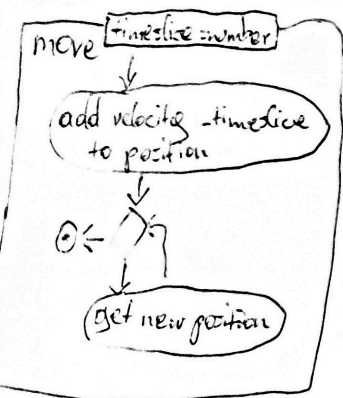 move
timeslice:number
add velocity - timeslice
to position
get new position